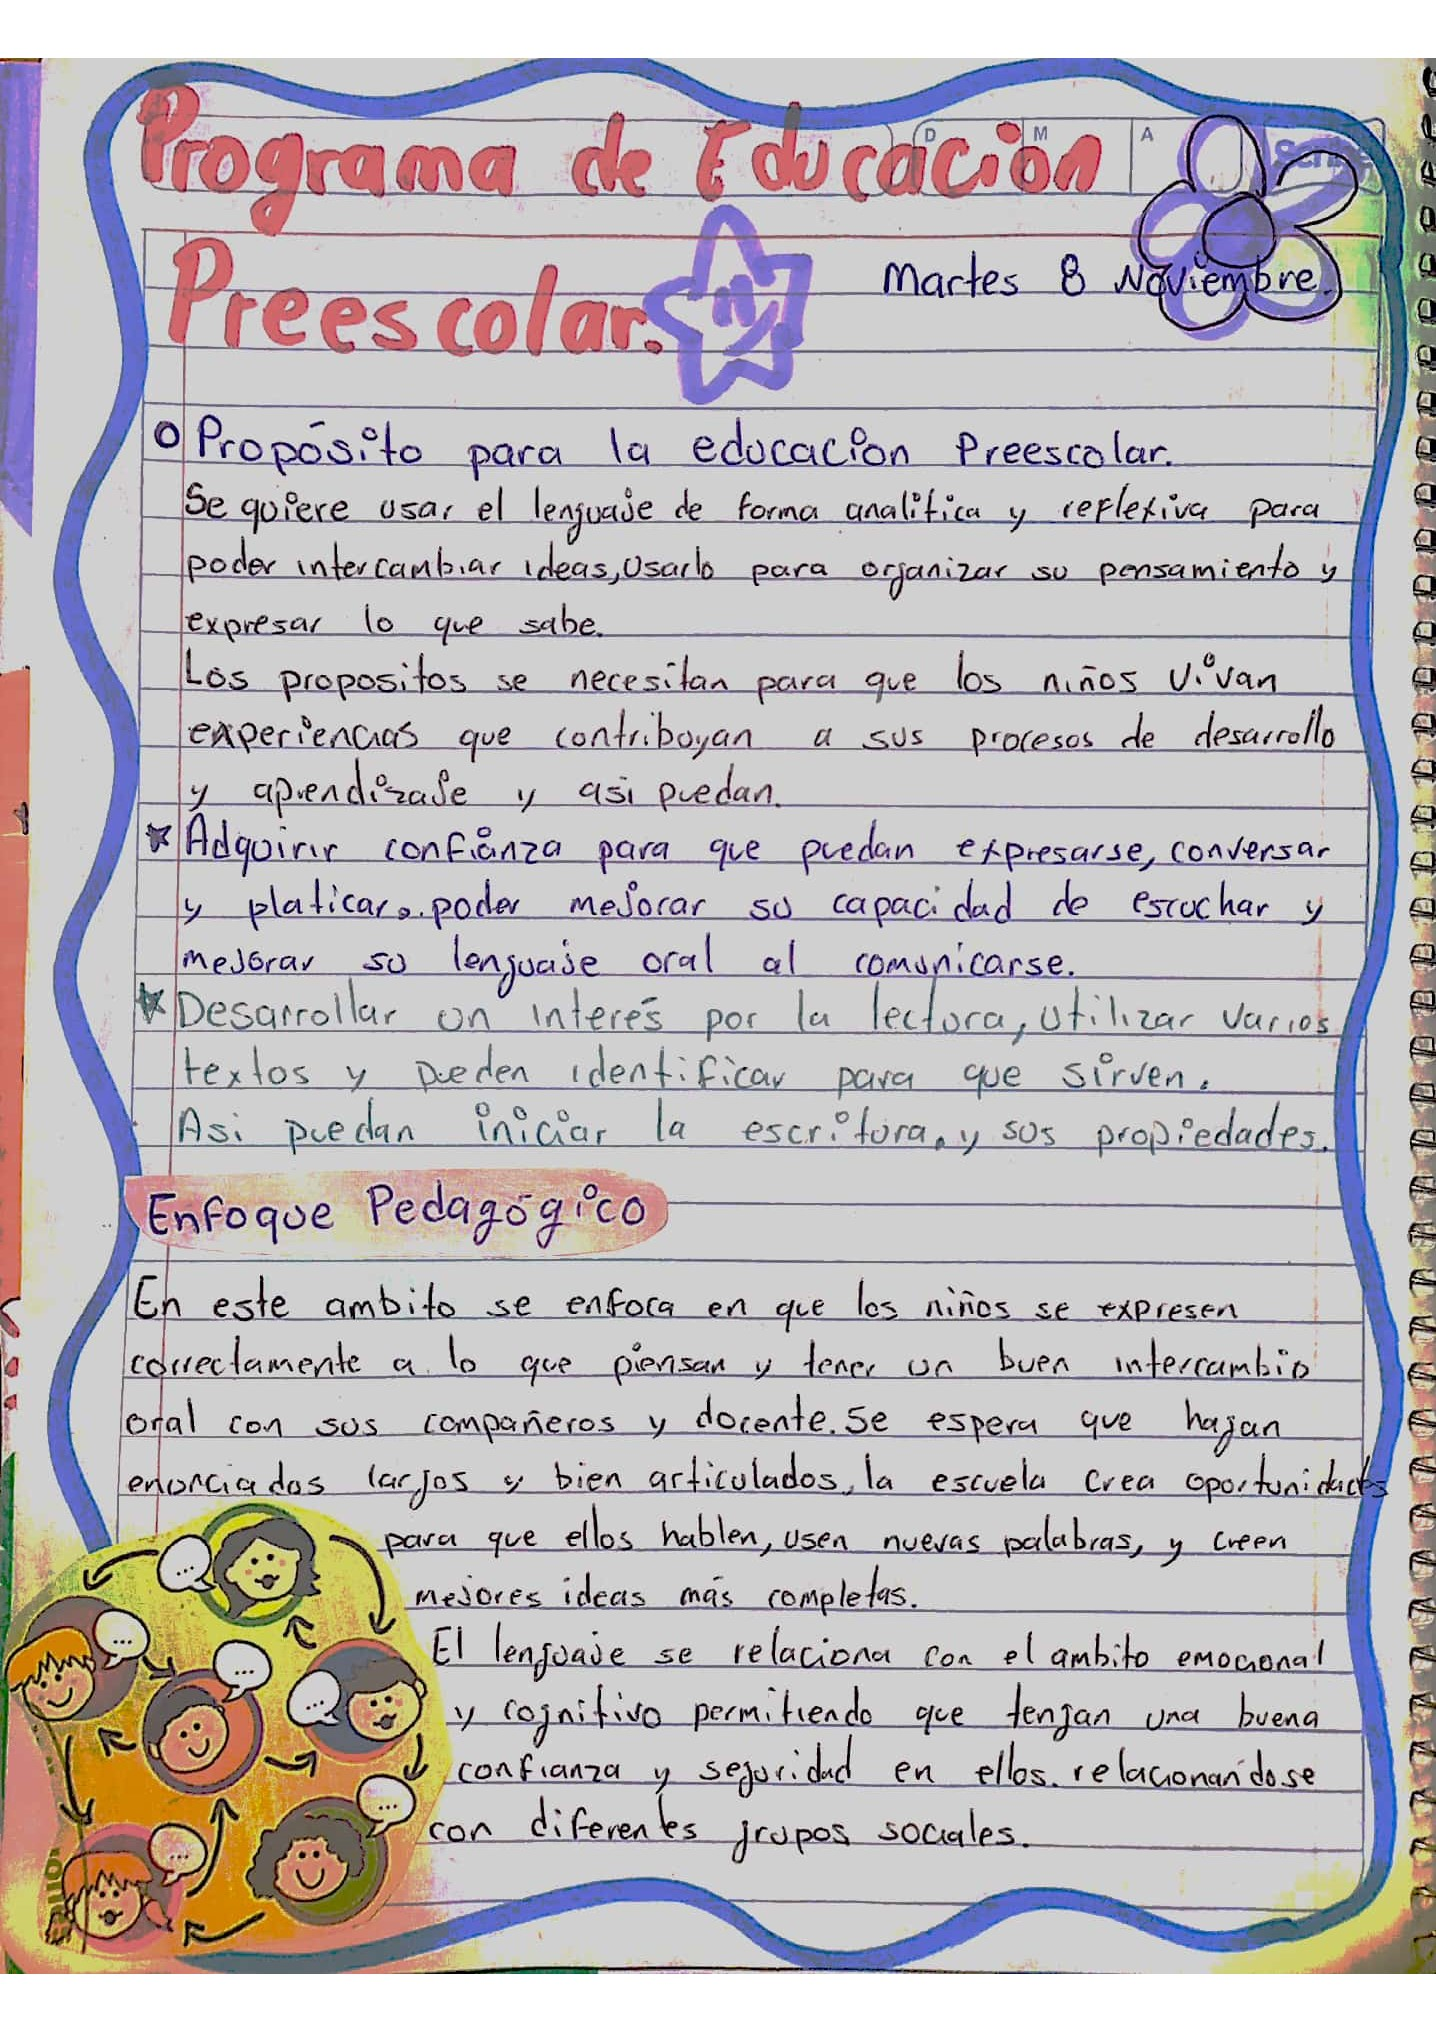 Programa de Educación
D M A
Scribe
Preescolar.
Martes 8 Noviembre.
Propósito para la educacion Preescolar.
Se quiere usar el lenguaje de forma analitica y reflexiva para
poder intercambiar ideas, Usarlo para organizar su pensamiento y
expresar lo que sabe.
Los propositos se necesitan para que los niños vivan
experiencias que contribuyan a sus procesos de desarrollo
y aprendizaje y asi puedan.
Adquirir confianza para que puedan expresarse, conversar
y platicar. poder mejorar su capacidad de escuchar y
mejorar su lenguaje oral al comunicarse.
Desarrollar un interés por la lectura, utilizar varios
textos y pueden identificar para que sirven.
Asi puedan iniciar la escritura. y sus propiedades.
Enfoque Pedagógico
En este ambito se enfoca en que los niños se expresen
correctamente a lo que piensan y tener un buen intercambio
oral con sus compañeros y docente. Se espera que hagan
enunciados largos y bien articulados, la escuela crea oportunidades
para que ellos hablen, usen nuevas palabras, y creen
mejores ideas más completas.
El lenguaje se relaciona con el ambito emocional
y cognitivo permitiendo que tengan una buena
confianza y seguridad en ellos. relacionandose
con diferentes grupos sociales.